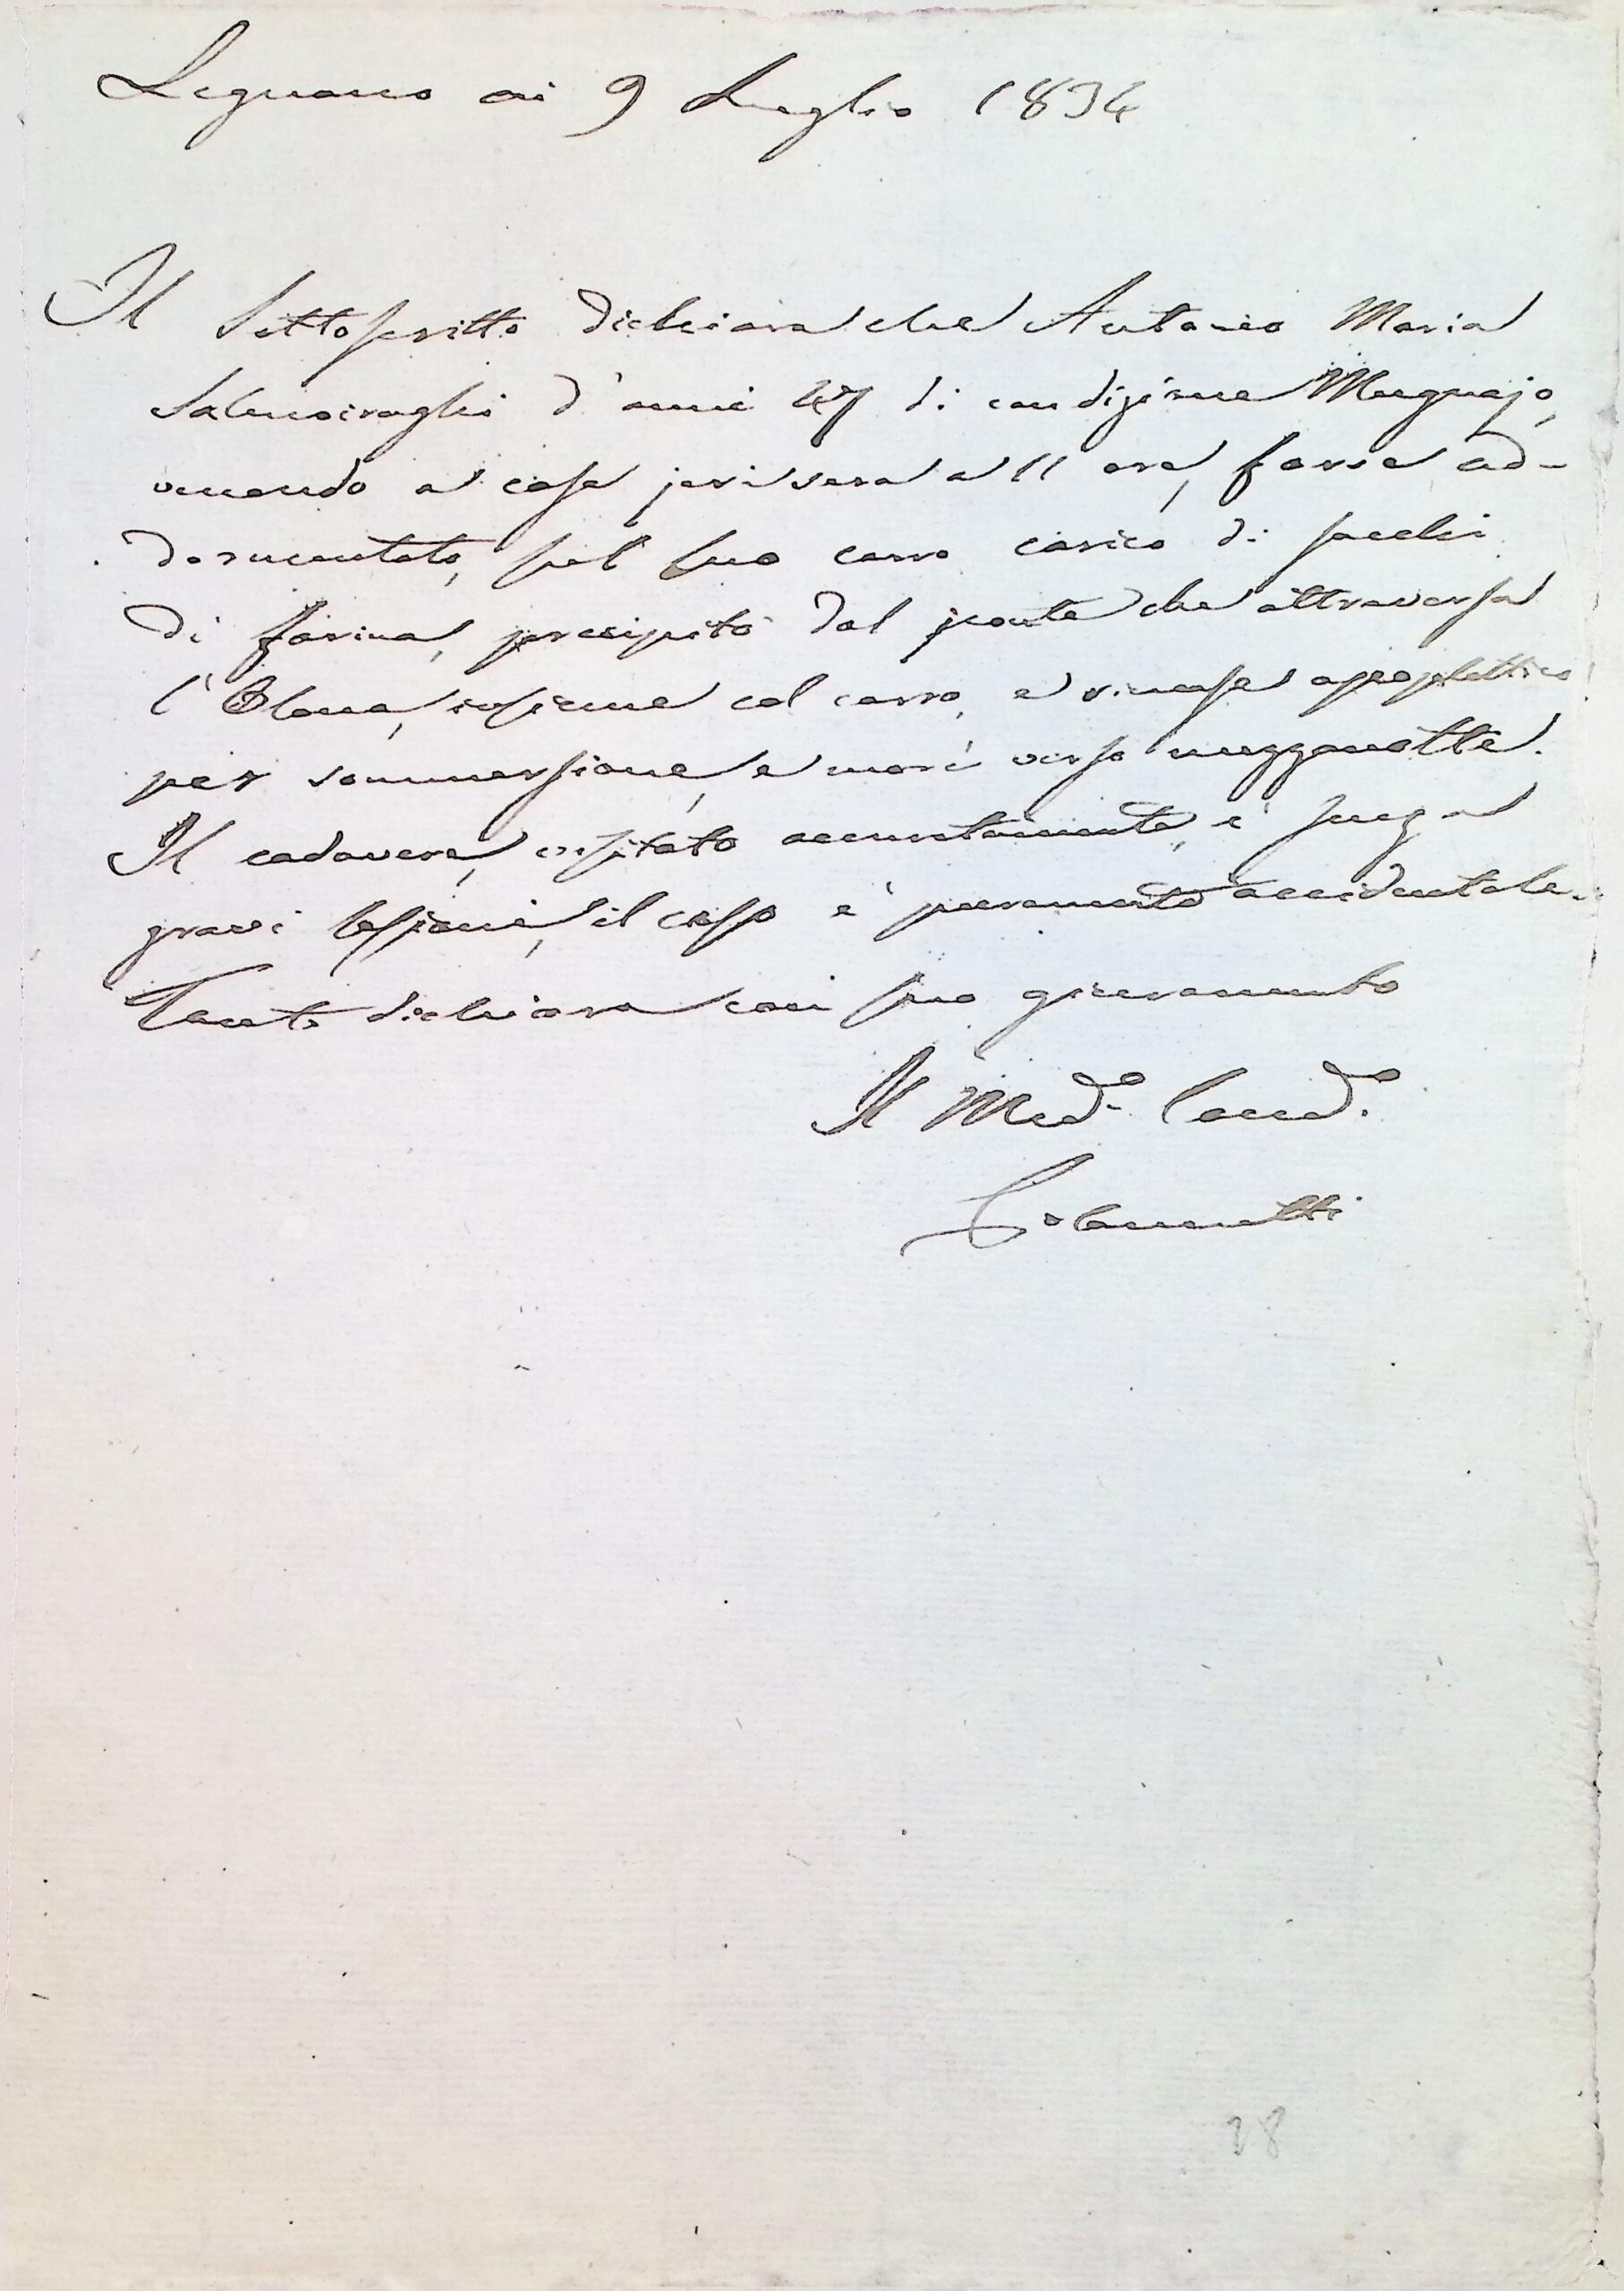 Legnano ai 9 Luglio 1834
Il Sottoscritto dichiara che Antonio Maria
Salmoiraghi d'anni 47 di condizione Mugnajo,
venendo a casa jeri sera a 11 ore, forse ad-
dormentato, sul suo carro carico di sacchi
di farina, precipitò dal ponte che attraversa
l'Olona, insieme col carro, e rimase apoplettico
per sommersione, e morì verso mezzanotte.
Il cadavere, visitato accuratamente, è senza
gravi lesioni, il caso è puramente accidentale.
Tanto dichiara con suo giuramento
Il Med.o Cond.o
28